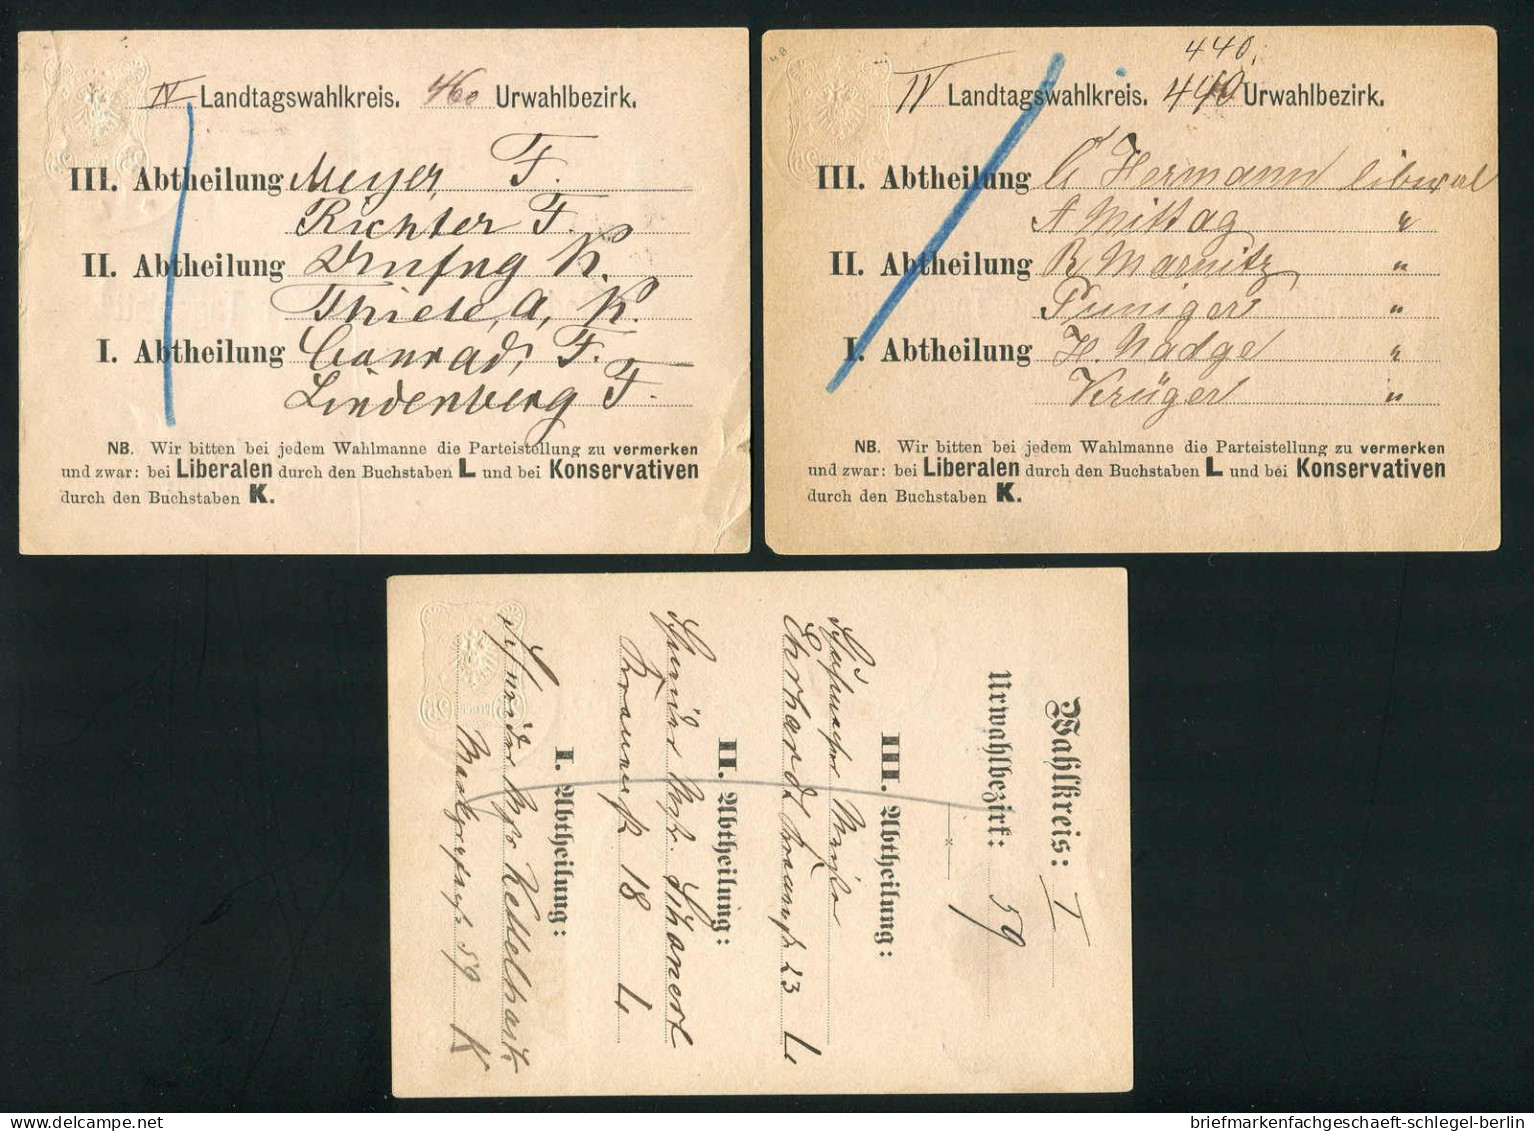 IV Landtagswahlkreis. 460 Urwahlbezirk.
III. Abtheilung Meyer, F.
Richter F.
II. Abtheilung K.
Thiele, a, K.
I. Abtheilung Conrad, F.
Lindenberg F.
NB. Wir bitten bei jedem Wahlmanne die Parteistellung zu vermerken
und zwar: bei Liberalen durch den Buchstaben L und bei Konservativen
durch den Buchstaben K.
440.
IV Landtagswahlkreis. 440 Urwahlbezirk.
III. Abtheilung C Hermann liberal
A Mittag "
II. Abtheilung R Marnitz "
"
I. Abtheilung H. Nadge "
Krüger "
NB. Wir bitten bei jedem Wahlmanne die Parteistellung zu vermerken
und zwar: bei Liberalen durch den Buchstaben L und bei Konservativen
durch den Buchstaben K.
Wahlkreis: I
Urwahlbezirk: 59
III. Abtheilung:
Schuhmacher
Ehrhardt 23 L.
II. Abtheilung:
Schanert
18 L.
I. Abtheilung:
Schneider
59 K
briefmarkenfachgeschaeft-schlegel-berlin